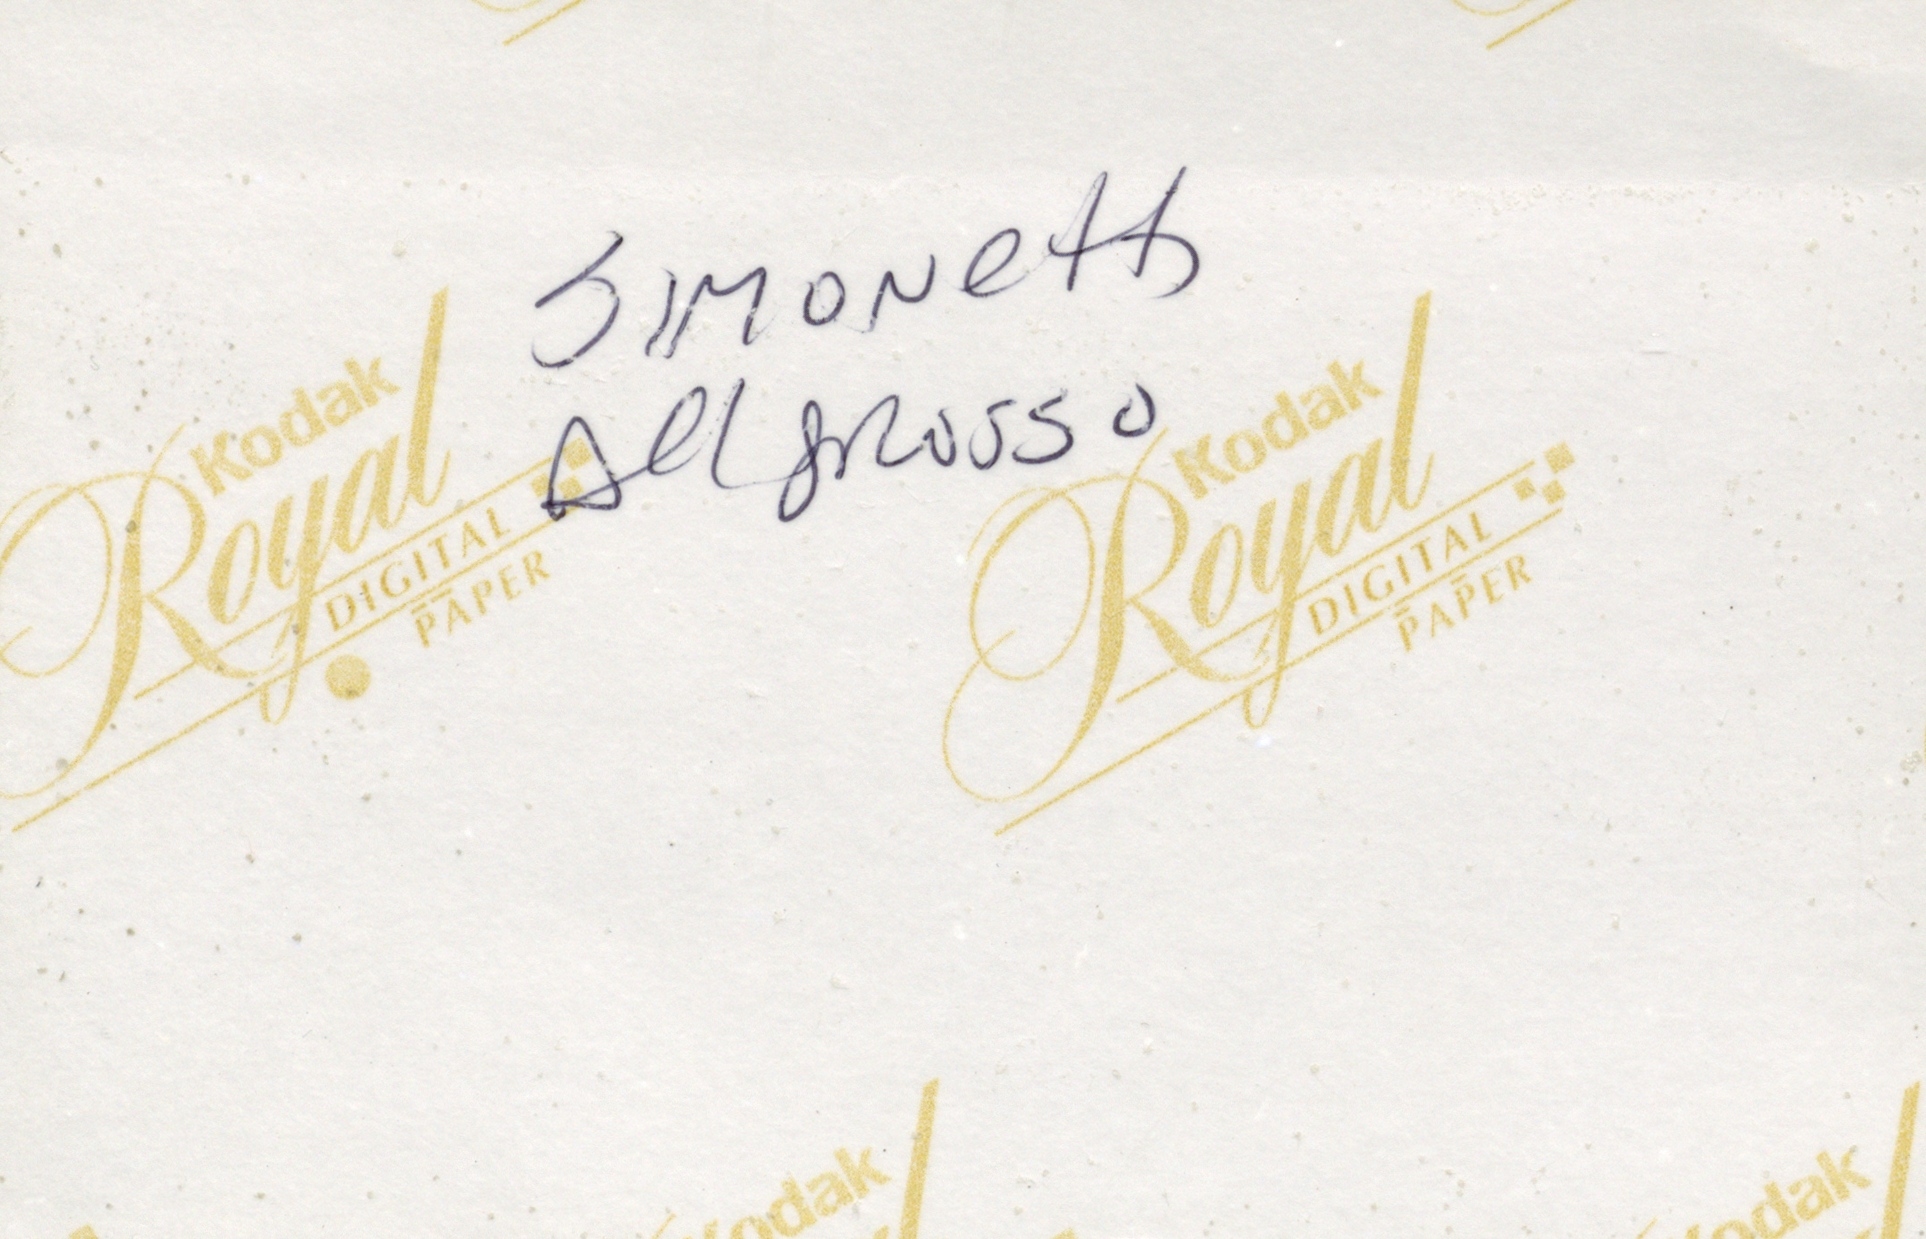 Simonetta
Dell grosso
Kodak
Royal
DIGITAL
PAPER
Kodak
Royal
DIGITAL
PAPER
Kodak
Kodak